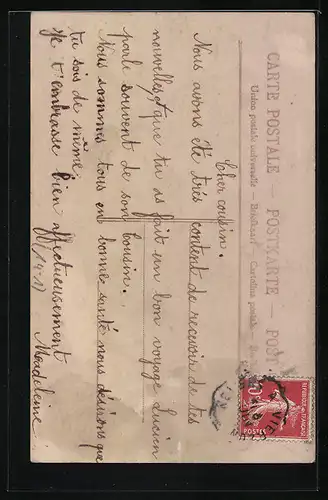 CARTE POSTALE — POSTKARTE — POST
Union postale universelle — Briefkaart — Cartolina postale
Cher cousin.
Nous avons été très content de recevoir de tes
nouvelles, et que tu as fait un bon voyage Lucien
parle souvent de son cousin.
Nous sommes tous en bonne santé nous désirons que
tu sois de même
Je t'embrasse bien affectueusement
Madeleine
REPUBLIQUE FRANÇAISE
10
POSTES